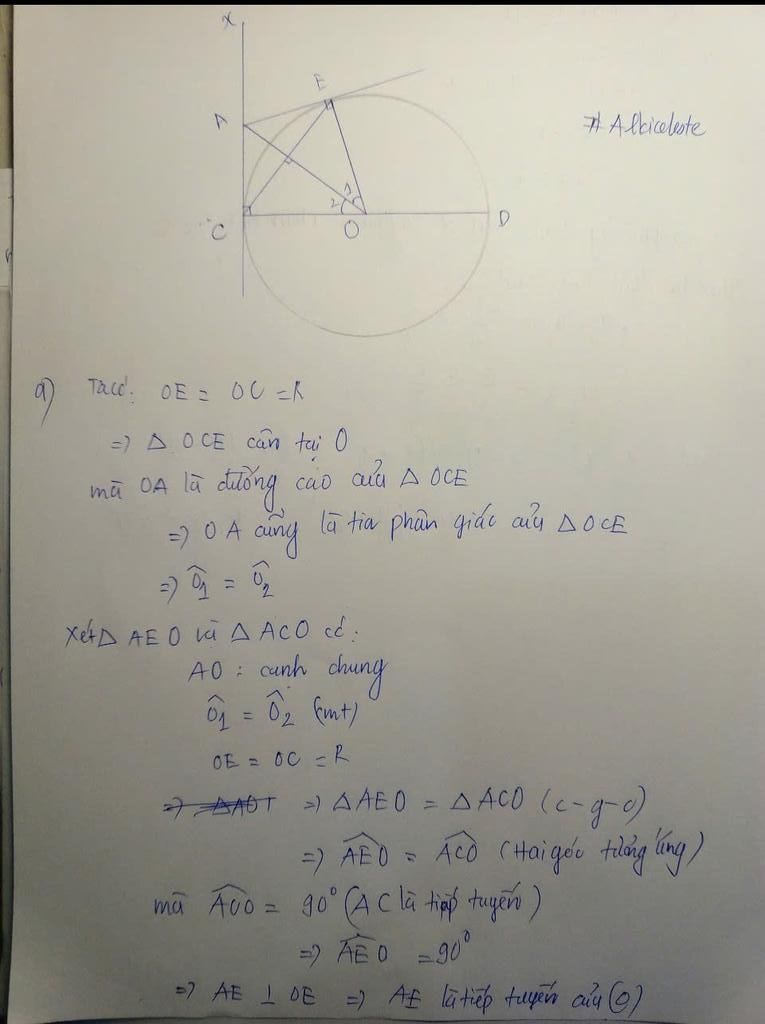 x
E
A
# Albiceleste
1
2
C
O
D
a) Ta có: OE = OC = R
=> △ OCE cân tại O
mà OA là đường cao của △ OCE
=> OA cũng là tia phân giác của △ OCE
=> Ô1 = Ô2
Xét △ AEO và △ ACO có:
AO : cạnh chung
Ô1 = Ô2 (cmt)
OE = OC = R
=> △AEO = △ACO (c-g-c)
=> AEO = ACO (Hai góc tương ứng)
mà ACO = 90° (AC là tiếp tuyến)
=> AEO = 90°
=> AE ⊥ OE => AE là tiếp tuyến của (O)